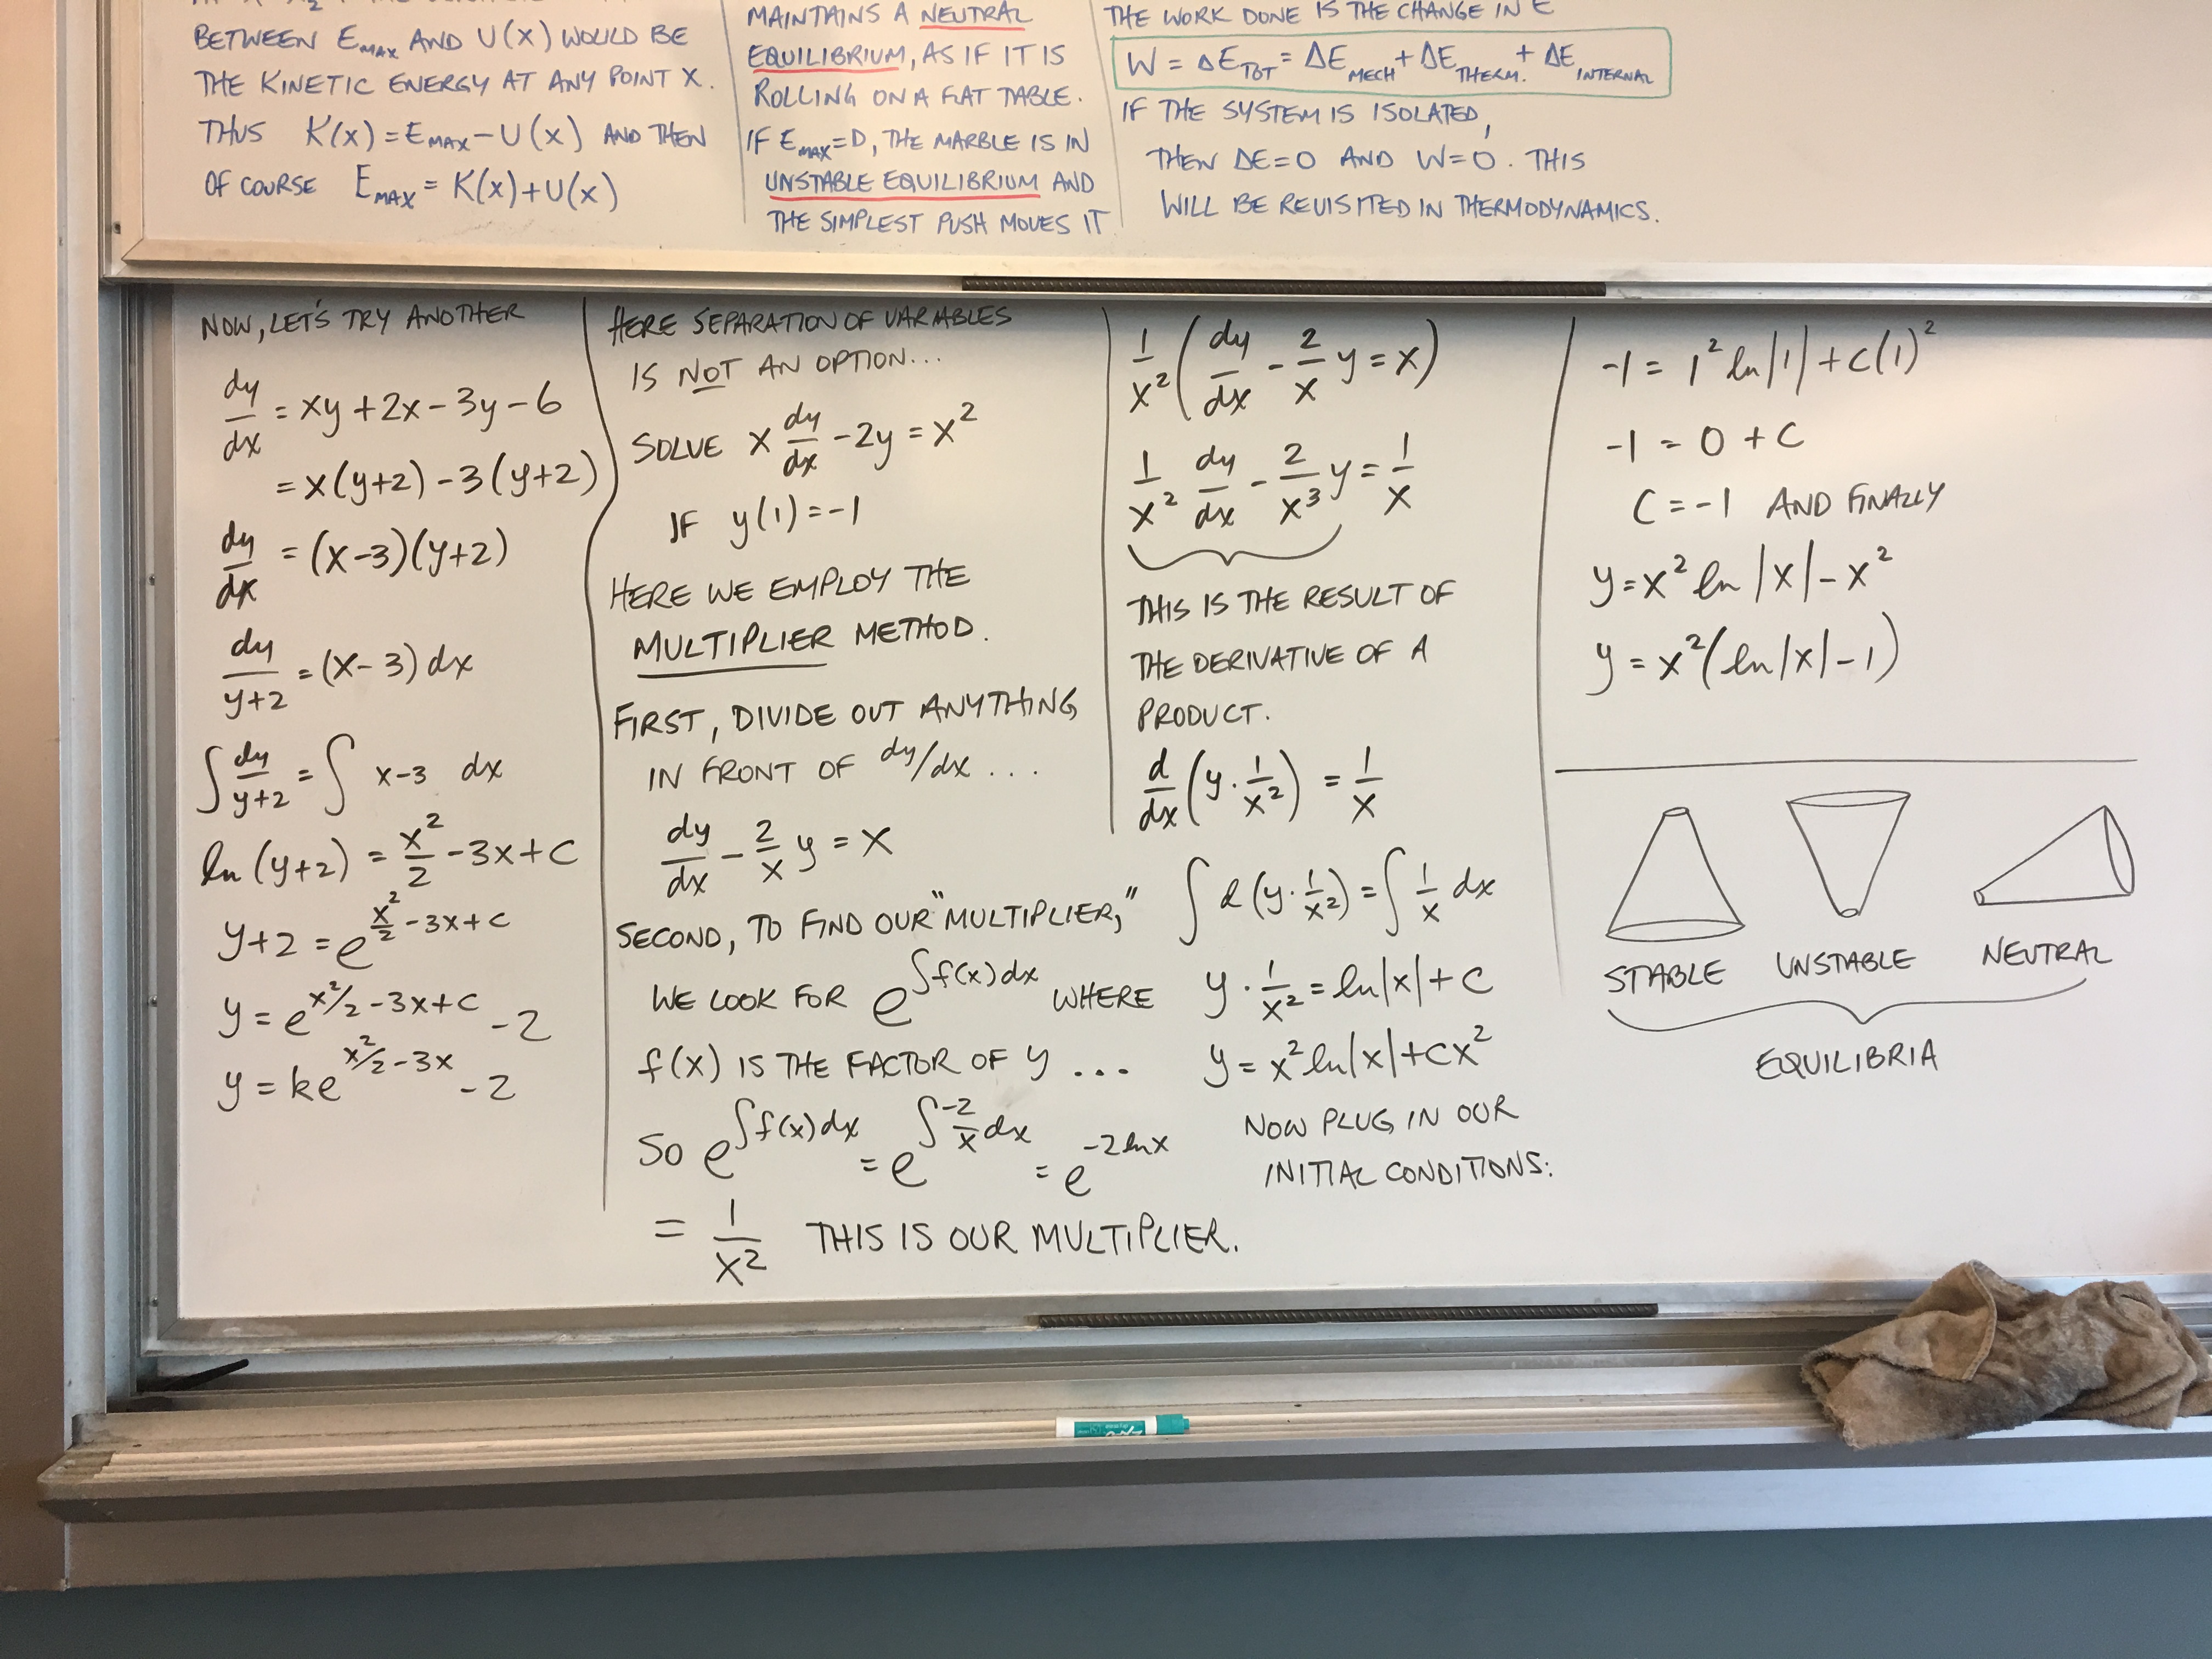 BETWEEN E_MAX AND U(X) WOULD BE
THE KINETIC ENERGY AT ANY POINT X.
THUS K(x) = E_MAX - U(x) AND THEN
OF COURSE E_MAX = K(x) + U(x)
MAINTAINS A NEUTRAL
EQUILIBRIUM, AS IF IT IS
ROLLING ON A FLAT TABLE.
IF E_MAX = D, THE MARBLE IS IN
UNSTABLE EQUILIBRIUM AND
THE SIMPLEST PUSH MOVES IT
THE WORK DONE IS THE CHANGE IN E
W = ΔE_TOT = ΔE_MECH + ΔE_THERM. + ΔE_INTERNAL
IF THE SYSTEM IS ISOLATED,
THEN ΔE=0 AND W=0. THIS
WILL BE REVISITED IN THERMODYNAMICS.
NOW, LET'S TRY ANOTHER
dy/dx = xy + 2x - 3y - 6
= x(y+2) - 3(y+2)
dy/dx = (x-3)(y+2)
dy/(y+2) = (x-3) dx
∫ dy/(y+2) = ∫ x-3 dx
ln(y+2) = x²/2 - 3x + C
y+2 = e^(x²/2 - 3x + c)
y = e^(x²/2 - 3x + c) - 2
y = ke^(x²/2 - 3x) - 2
HERE SEPARATION OF VARIABLES
IS NOT AN OPTION...
SOLVE x dy/dx - 2y = x²
IF y(1) = -1
HERE WE EMPLOY THE
MULTIPLIER METHOD.
FIRST, DIVIDE OUT ANYTHING
IN FRONT OF dy/dx ...
dy/dx - 2/x y = x
SECOND, TO FIND OUR "MULTIPLIER,"
WE LOOK FOR e^(∫f(x)dx) WHERE
f(x) IS THE FACTOR OF y ...
SO e^(∫f(x)dx) = e^(∫-2/x dx) = e^(-2lnx)
= 1/x² THIS IS OUR MULTIPLIER.
1/x² (dy/dx - 2/x y = x)
1/x² dy/dx - 2/x³ y = 1/x
THIS IS THE RESULT OF
THE DERIVATIVE OF A
PRODUCT.
d/dx (y · 1/x²) = 1/x
∫ d(y · 1/x²) = ∫ 1/x dx
y · 1/x² = ln|x| + C
y = x² ln|x| + cx²
NOW PLUG IN OUR
INITIAL CONDITIONS:
-1 = 1² ln|1| + c(1)²
-1 = 0 + C
C = -1 AND FINALLY
y = x² ln|x| - x²
y = x²(ln|x| - 1)
STABLE UNSTABLE NEUTRAL
EQUILIBRIA